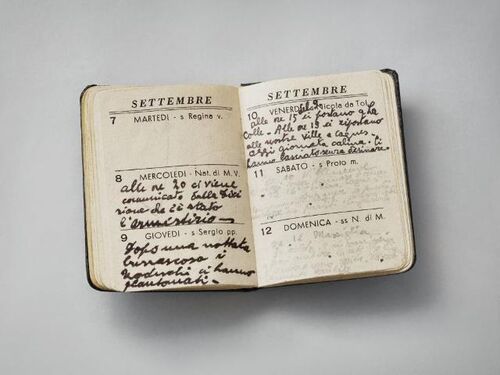 SETTEMBRE
7 MARTEDI - s Regina v.
8 MERCOLEDI - Nat. di M. V.
alle ore 20 ci viene
comunicato dalla Dire
zione che c'è stato
l'armistizio -
9 GIOVEDI - s Sergio pp.
Dopo una nottata
burrascosa i
Tedeschi ci hanno
piantonati -
SETTEMBRE
10 VENERDI - s Nicola da Tol.
alle ore 15 ci portano
Colle - Alle ore 19 ci riportano
alle nostre ville a
oggi giornata calma. Ci
hanno lasciato senza desinare
11 SABATO - s Proto m.
12 DOMENICA - ss N. di M.